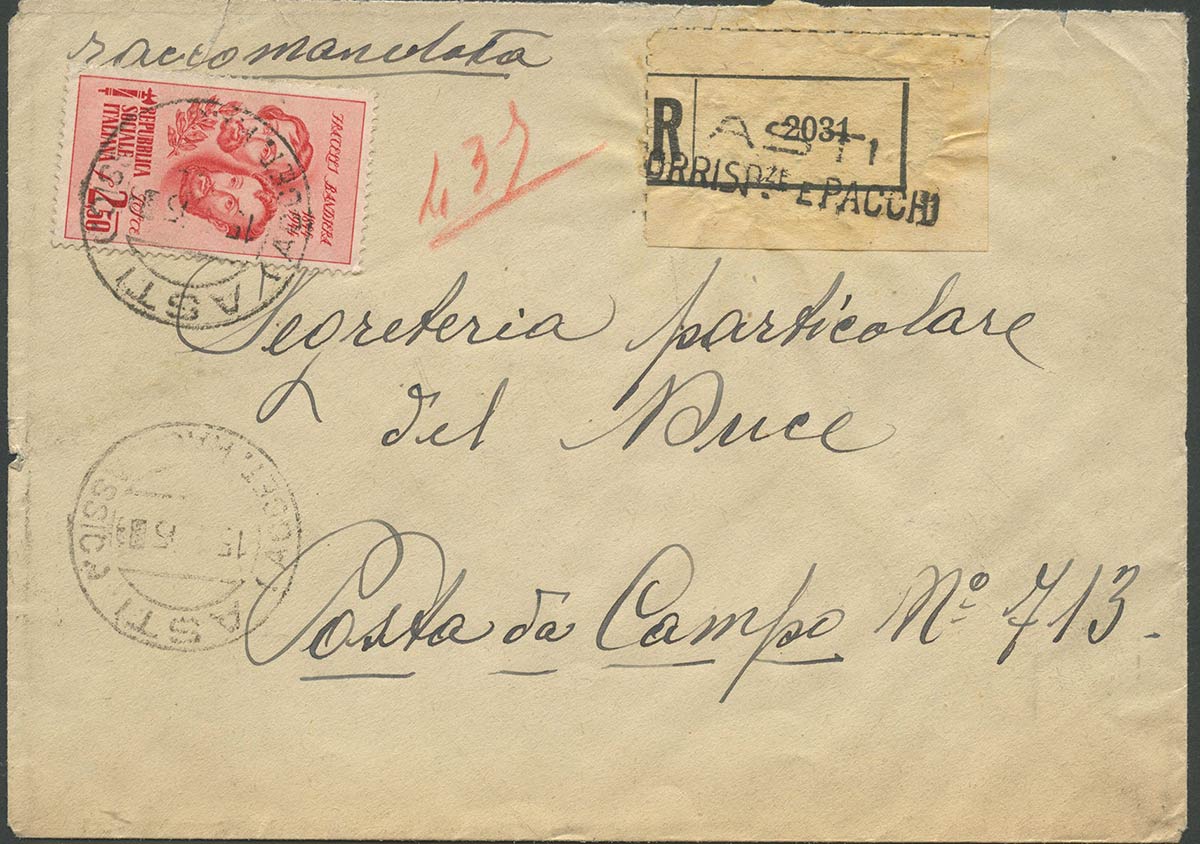 raccomandata
REPUBBLICA
SOCIALE
ITALIANA
FRATELLI BANDIERA
1844
1944
POSTE
L. 2,50
R
2031
ASTI
ORRISP.ZE E PACCHI
ASTI
15
Segreteria particolare
del Duce
ASTI
15 5
Posta da Campo Nº 713.